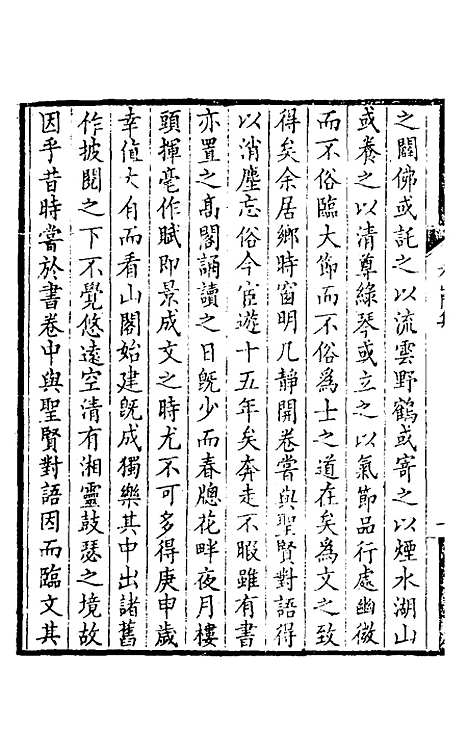 之闢佛或託之以流雲野鶴或寄之以煙水湖山
或養之以清尊綠琴或立之以氣節品行處幽微
而不俗臨大節而不俗爲士之道在矣爲文之致
得矣余居鄉時窗明几靜開卷嘗與聖賢對語得
以消塵忘俗今宦遊十五年矣奔走不暇雖有書
亦置之高閣誦讀之日旣少而春牕花畔夜月樓
頭揮毫作賦即景成文之時尤不可多得庚申歲
幸值大有而看山閣始建旣成獨樂其中出諸舊
作披閱之下不覺悠遠空清有湘靈鼓瑟之境故
因乎昔時嘗於書卷中與聖賢對語因而臨文其